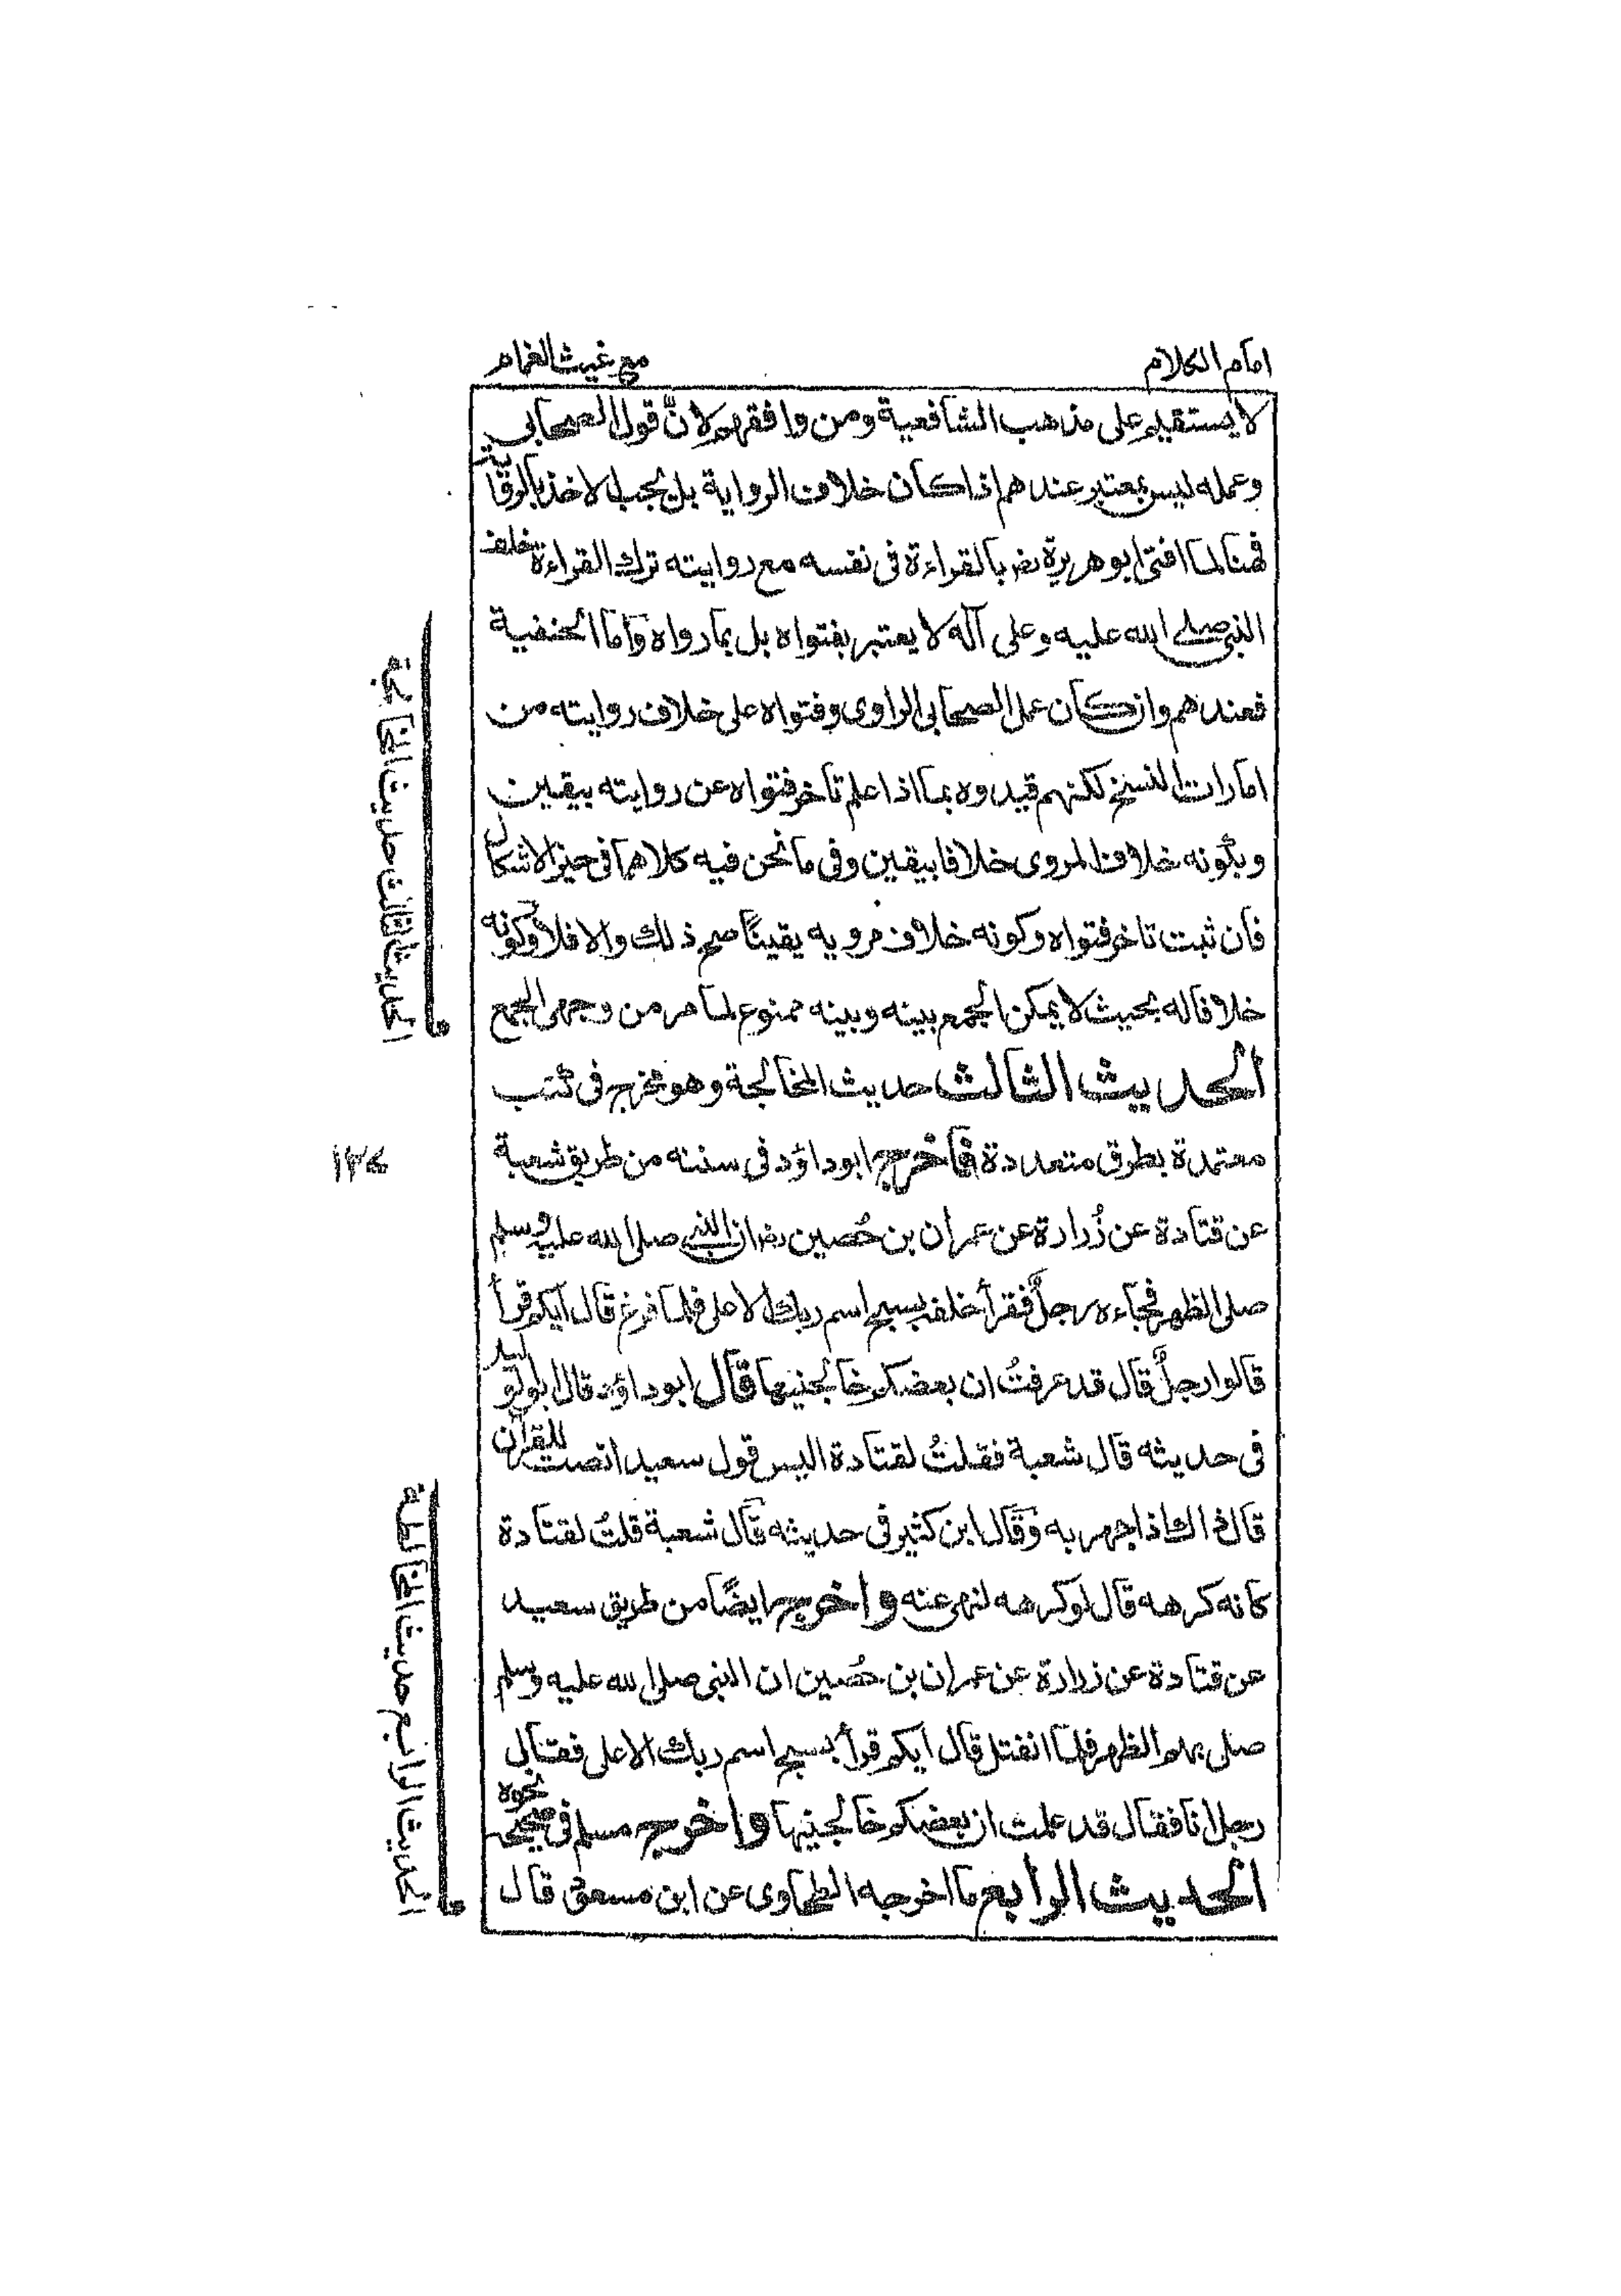 امام الكلام
مع غيث الغمام
لا يستقيم على مذهب الشافعية ومن وافقهم لانّ قول الصحابي
وعمله ليس بمعتبر عندهم اذا كان خلاف الرواية بل يجب الاخذ بالرواية
فهنا لما افتى ابو هريرة رضـ بالقراءة فى نفسه مع روايته ترك القراءة خلف
النبى صلى الله عليه وعلى آله لا يعتبر بفتواه بل بما رواه وَامّا الحنفية
فعندهم وان كان عمل الصحابى الراوى وفتواه على خلاف روايته من
امارات النسخ لكنهم قيدوه بما اذا علم تاخر فتواه عن روايته بيقين
وبكونه خلاف المروى خلافا بيقين وفى ما نحن فيه كلاهما فى حيز الاشكال
فان ثبت تاخر فتواه وكونه خلاف مرويه يقينًا صح ذلك والا فلا وكونه
خلافا له بحيث لا يمكن الجمع بينه وبينه ممنوع لما مر من وجهى الجمع
الحديث الثالث حديث المخالجة وهو مخرج فى كتب
معتمدة بطرق متعددة فاخرج ابو داؤد فى سننه من طريق شعبة
عن قتادة عن زُرارة عن عمران بن حُصين رضـ ان النبى صلى الله عليه وسلم
صلى الظهر فجاءه رجلٌ فقرأ خلفه بسبح اسم ربك الاعلى فلما فرغ قال ايكم قرأ
قالوا رجلٌ قال قد عرفتُ ان بعضكم خالجنيها قال ابو داؤد قال ابو الوليد
فى حديثه قال شعبة فقلتُ لقتادة اليس قول سعيد انصت للقرآن
قال ذاك اذا جهر به وَقَال ابن كثير فى حديثه قال شعبة قلتُ لقتادة
كانه كرهه قال لو كرهه لنهى عنه واخرج ايضًا من طريق سعيد
عن قتادة عن زرارة عن عمران بن حُصين ان النبى صلى الله عليه وسلم
صلى بهم الظهر فلما انفتل قال ايكم قرأ بسبح اسم ربك الاعلى فقال
رجل انا فقال قد علمت ان بعضكم خالجنيها واخرج مسلم فى صحيحه نحوه
الحديث الرابع ما اخرجه الطحاوى عن ابن مسعود قال
الحديث الثالث حديث المخالجة
١٣٧
الحديث الرابع حديث المخالطة